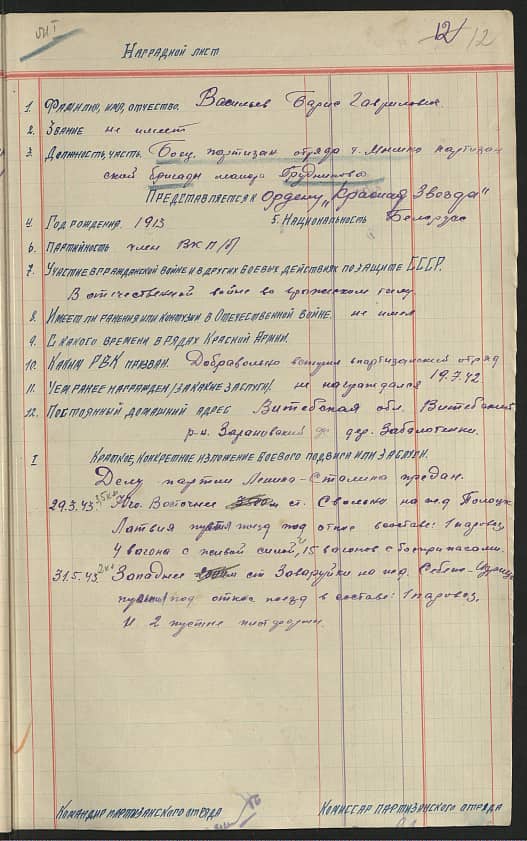 12 12
Наградной лист
1. Фамилия, имя, отчество. Васильев Барис Гаврилович
2. Звание не имеет
3. Должность, часть. Боец партизан отряда т. партизан
ской бригады майора
Представляется к Ордену "Красная Звезда"
4 Год рождения. 1913 5. Национальность Беларус
6. Партийность член ВКП/б/
7. Участие в гражданской войне и в других боевых действиях по защите СССР.
В отечественной войне во вражеском тылу
8. Имеет ли ранения или контузии в Отечественной войне. не имел
9. С какого времени в рядах Красной Армии.
10. Каким РВК призван. Добравольно вступил в партизанский отряд
19.7.42
11. Чем ранее награжден /за какие заслуги/ не награждался
12. Постоянный домашний адрес Витебская обл. Витебский
р-н. Зароновский дер. Забалотники
I Краткое, конкретное изложение боевого подвига или заслуги.
Делу партии Ленина-Сталина предан.
29.3.43 Юго Восточнее ст. Свольна на жд Полоцк-
Латвия пустил поезд под откос в составе: 1 паровоз
4 вагона с живой силой, и 15 вагонов с боеприпасами.
31.5.43 2км Западнее ст Заваруйки на жд. Себеж-Идрица
пустил под откос поезд в составе: 1 паровоз,
и 2 пустые платформы.
Командир партизанского отряда Комиссар партизанского отряда